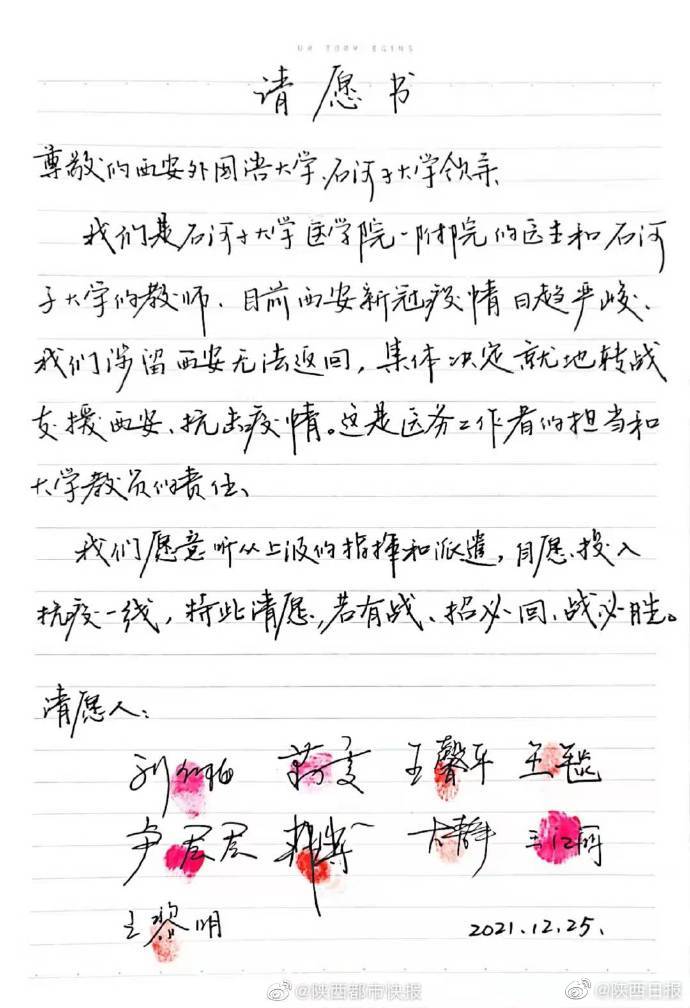 请愿书
尊敬的西安外国语大学、石河子大学领导、
我们是石河子大学医学院一附院的医生和石河
子大学的教师、目前西安新冠疫情日趋严峻、
我们滞留西安无法返回，集体决定就地转战
支援西安、抗击疫情。这是医务工作者的担当和
大学教员的责任、
我们愿意听从上级的指挥和派遣，自愿投入
抗疫一线，特此请愿，若有战、招必回、战必胜。
请愿人：
王馨平
尹君君
王江丽
王黎明 2021.12.25.
@陕西都市快报 @陕西日报